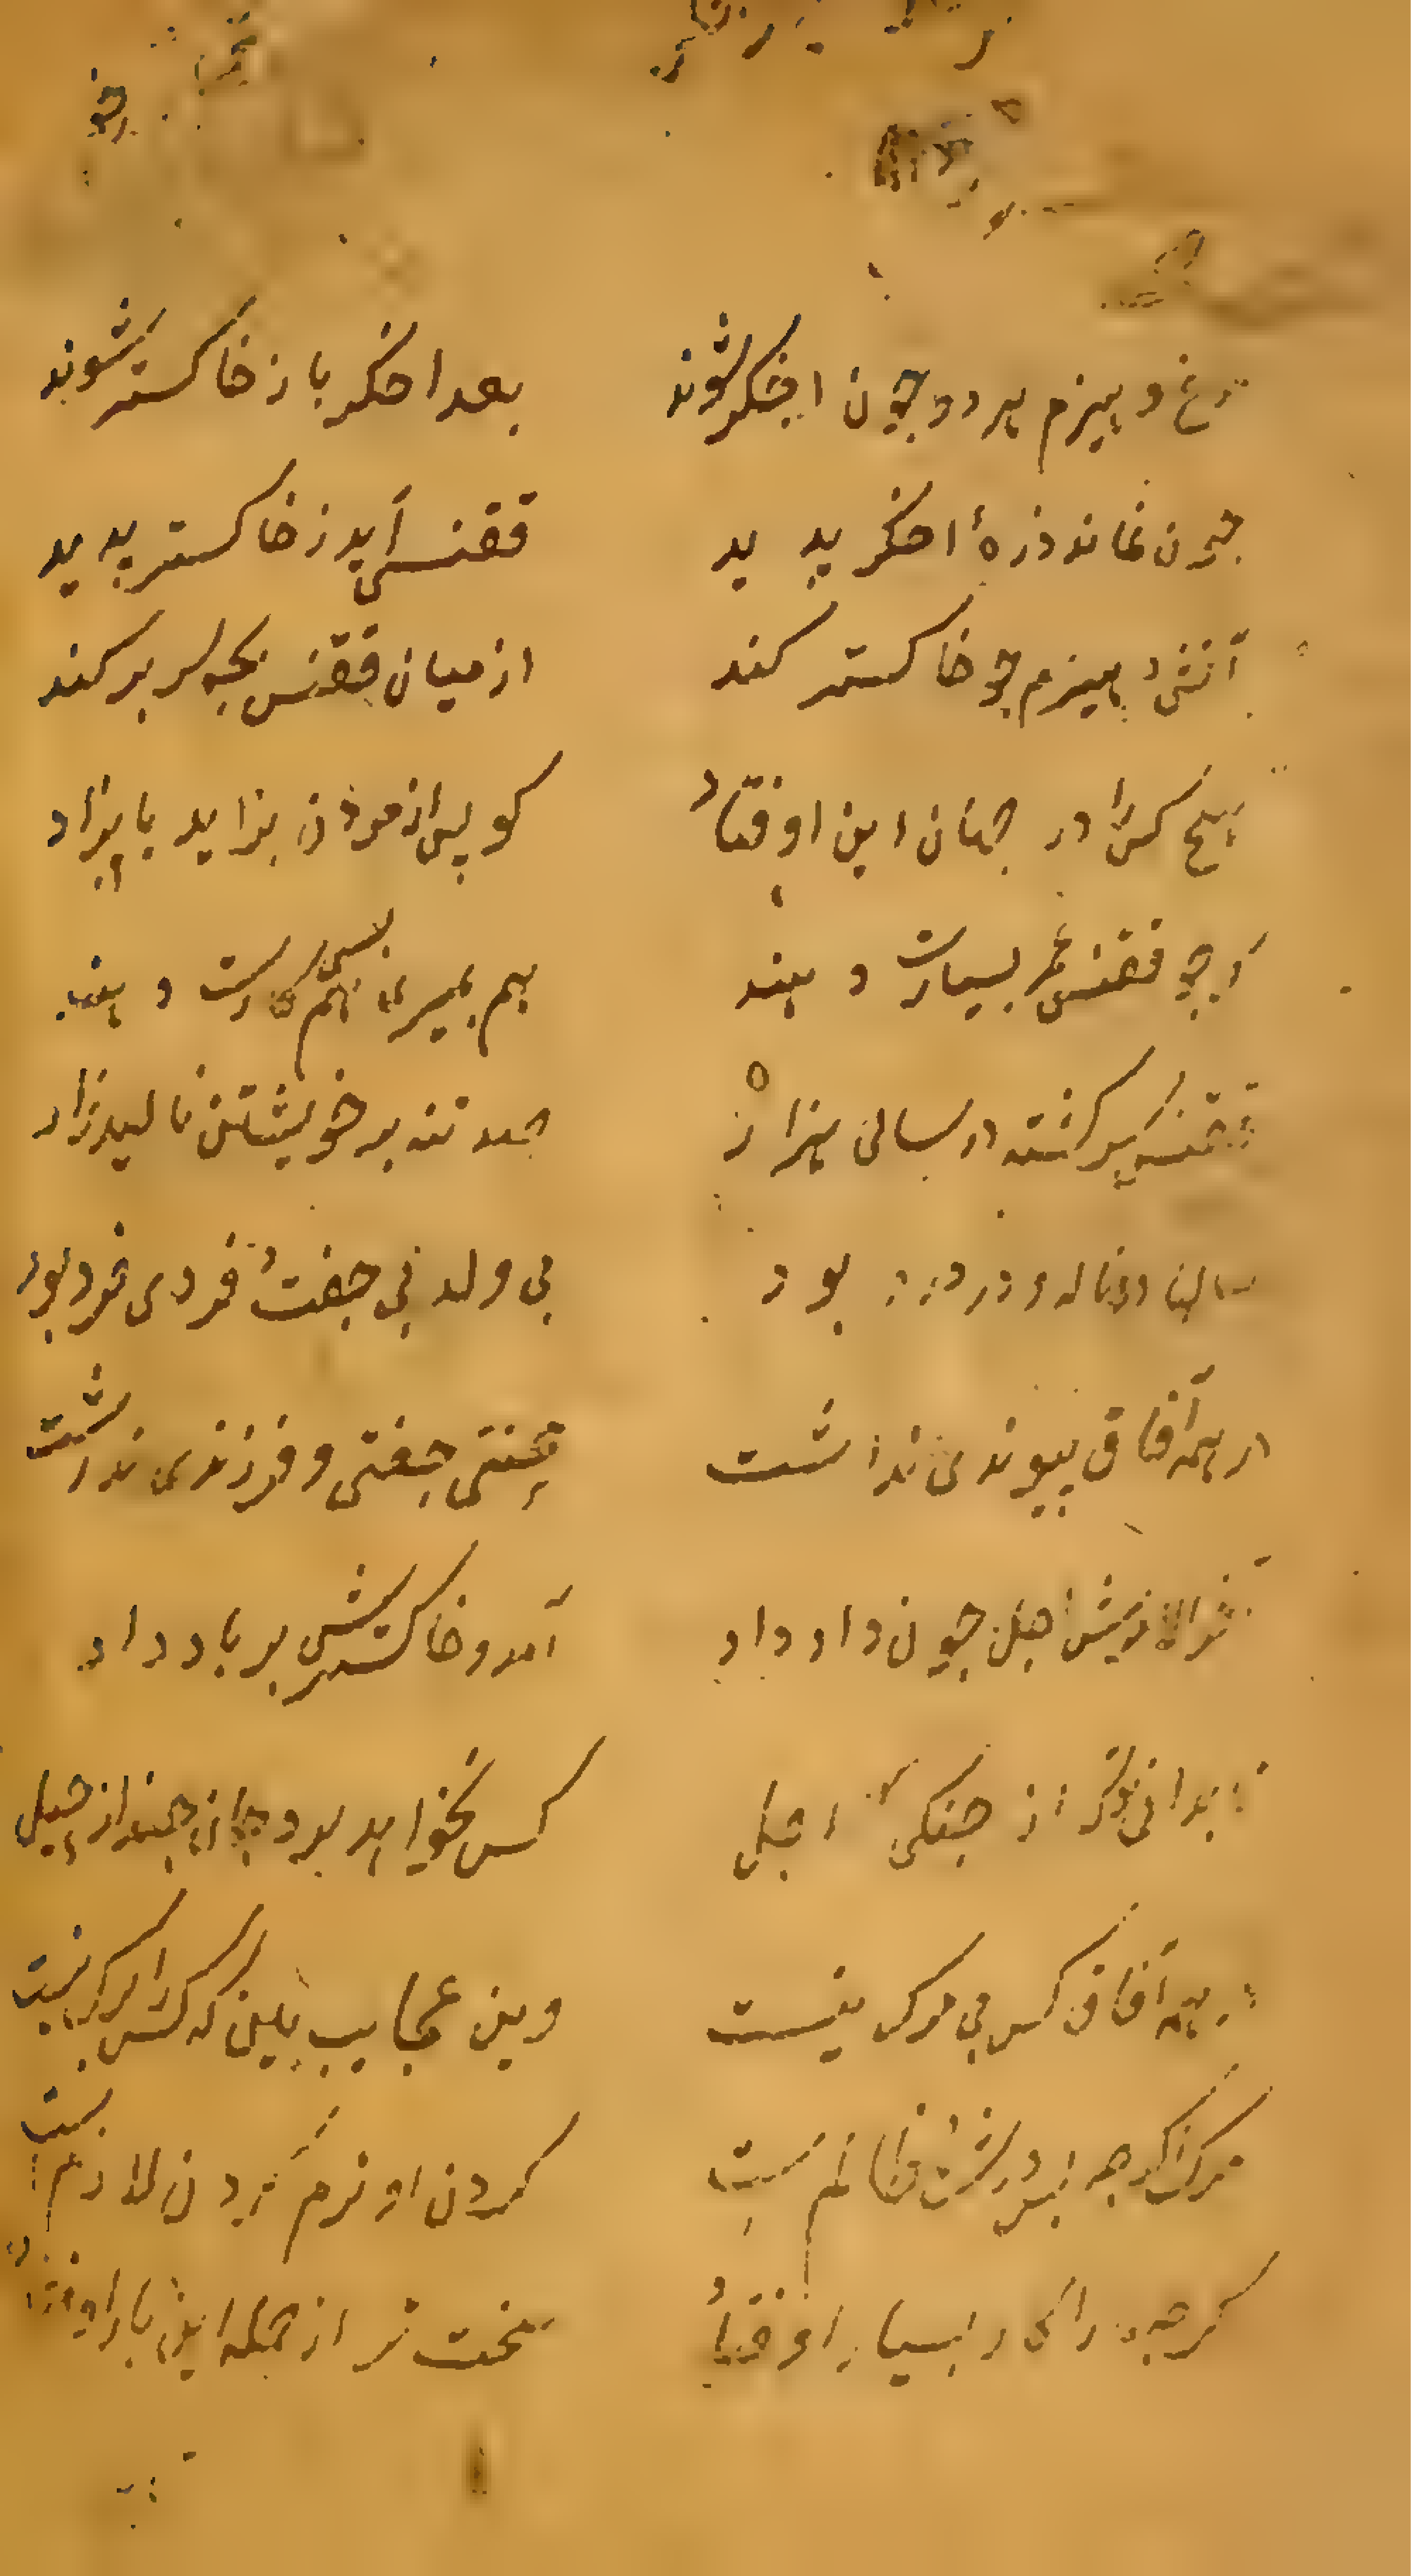 مرغ و هیزم هر دو چون اخکر شوند بعد اخکر باز خاکستر شوند
چون نماند ذرهٔ اخکر پدید ققنسی آید ز خاکستر پدید
آتش هیزم چو خاکستر کند از میان ققنس بچه سر بر کند
هیچ کس را در جهان این اوفتاد کو پس از مردن بزاید یا بزاد
کر چو ققنس عمر بسیارت دهند هم بمیری هم بسی کارت دهند
ققنس سرکشته در سالی هزار صد تنه بر خویشتن نالید زار
سالها در ناله و در درد بود بی ولد بی جفت فردی فرد بود
در همه آفاق پیوندی نداشت محنتی جفتی و فرزندی نداشت
آخر الامرش اجل چون داد داد آمد و خاکسترش بر باد داد
تا بدانی تو که از چنک اجل کس نخواهد برد جان چند از حیل
در همه آفاق کس بی مرک نیست وین عجایب بین که کس را برک نیست
مرک اکرچه بس درشت و ظالم است کردن او نرم کردن لازم است
کرچه ما را کار بسیار اوفتاد سخت تر از جمله این بار اوفتاد